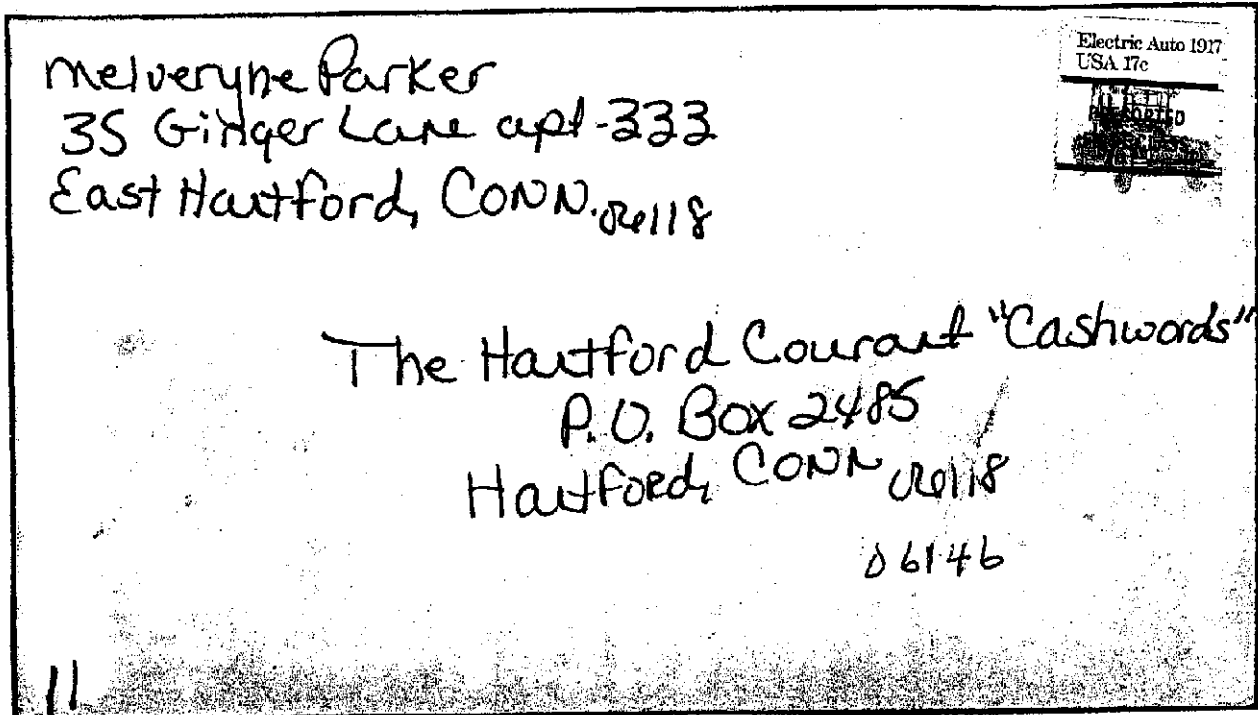 Melveryne Parker
35 Ginger Lane apt-333
East Hartford, CONN. 06118
Electric Auto 1917
USA 17c
The Hartford Courant "Cashwords"
P.O. Box 2485
Hartford, CONN 06118
06146
11